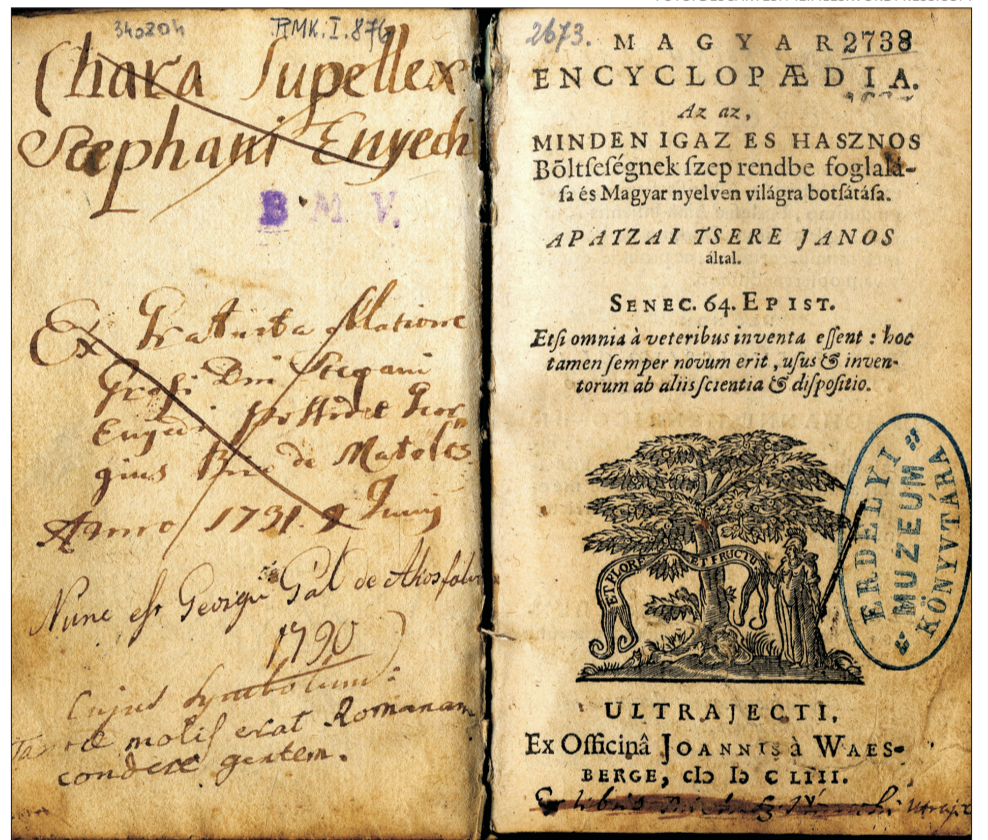 340204
RMK. I. 876
Chara Supellex
Stephani Enyedi
B. M. V.
Ex Gratuita
Anno 1791. 2 Junij
Nunc est Georgii Gál de
1790
Cujus Symbolum:
molis erat Romanam
condere gentem.
2673.
MAGYAR 2738
ENCYCLOPÆDIA.
Az az,
MINDEN IGAZ ES HASZNOS
Bőltſeſégnek ſzep rendbe foglalá-
ſa és Magyar nyelven világra botſátáſa.
APATZAI TSERE JANOS
által.
SENEC. 64. EPIST.
Etſi omnia à veteribus inventa eſſent : hoc
tamen ſemper novum erit , uſus & inven-
torum ab aliis ſcientia & diſpoſitio.
ET FLORE ET FRUCTU
ERDÉLYI
MUZEUM
KÖNYVTÁRA
ULTRAJECTI,
Ex Officinâ JOANNIS à WAES-
BERGE, cIↄ Iↄ C LIII.
Ex libris